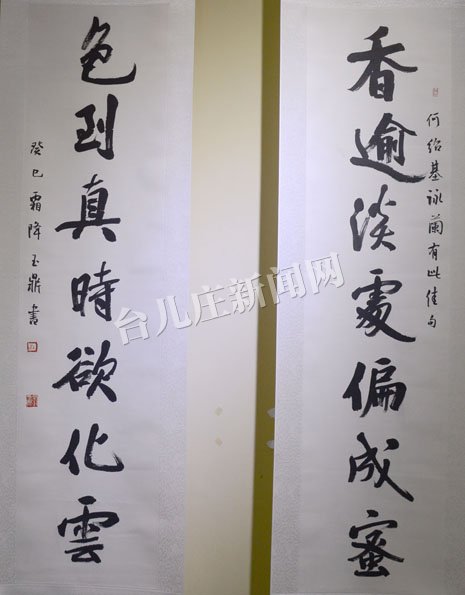 香逾淡處偏成蜜
何绍基詠蘭有此佳句
色到真時欲化雲
癸巳霜降玉鼎書
台儿庄新闻网